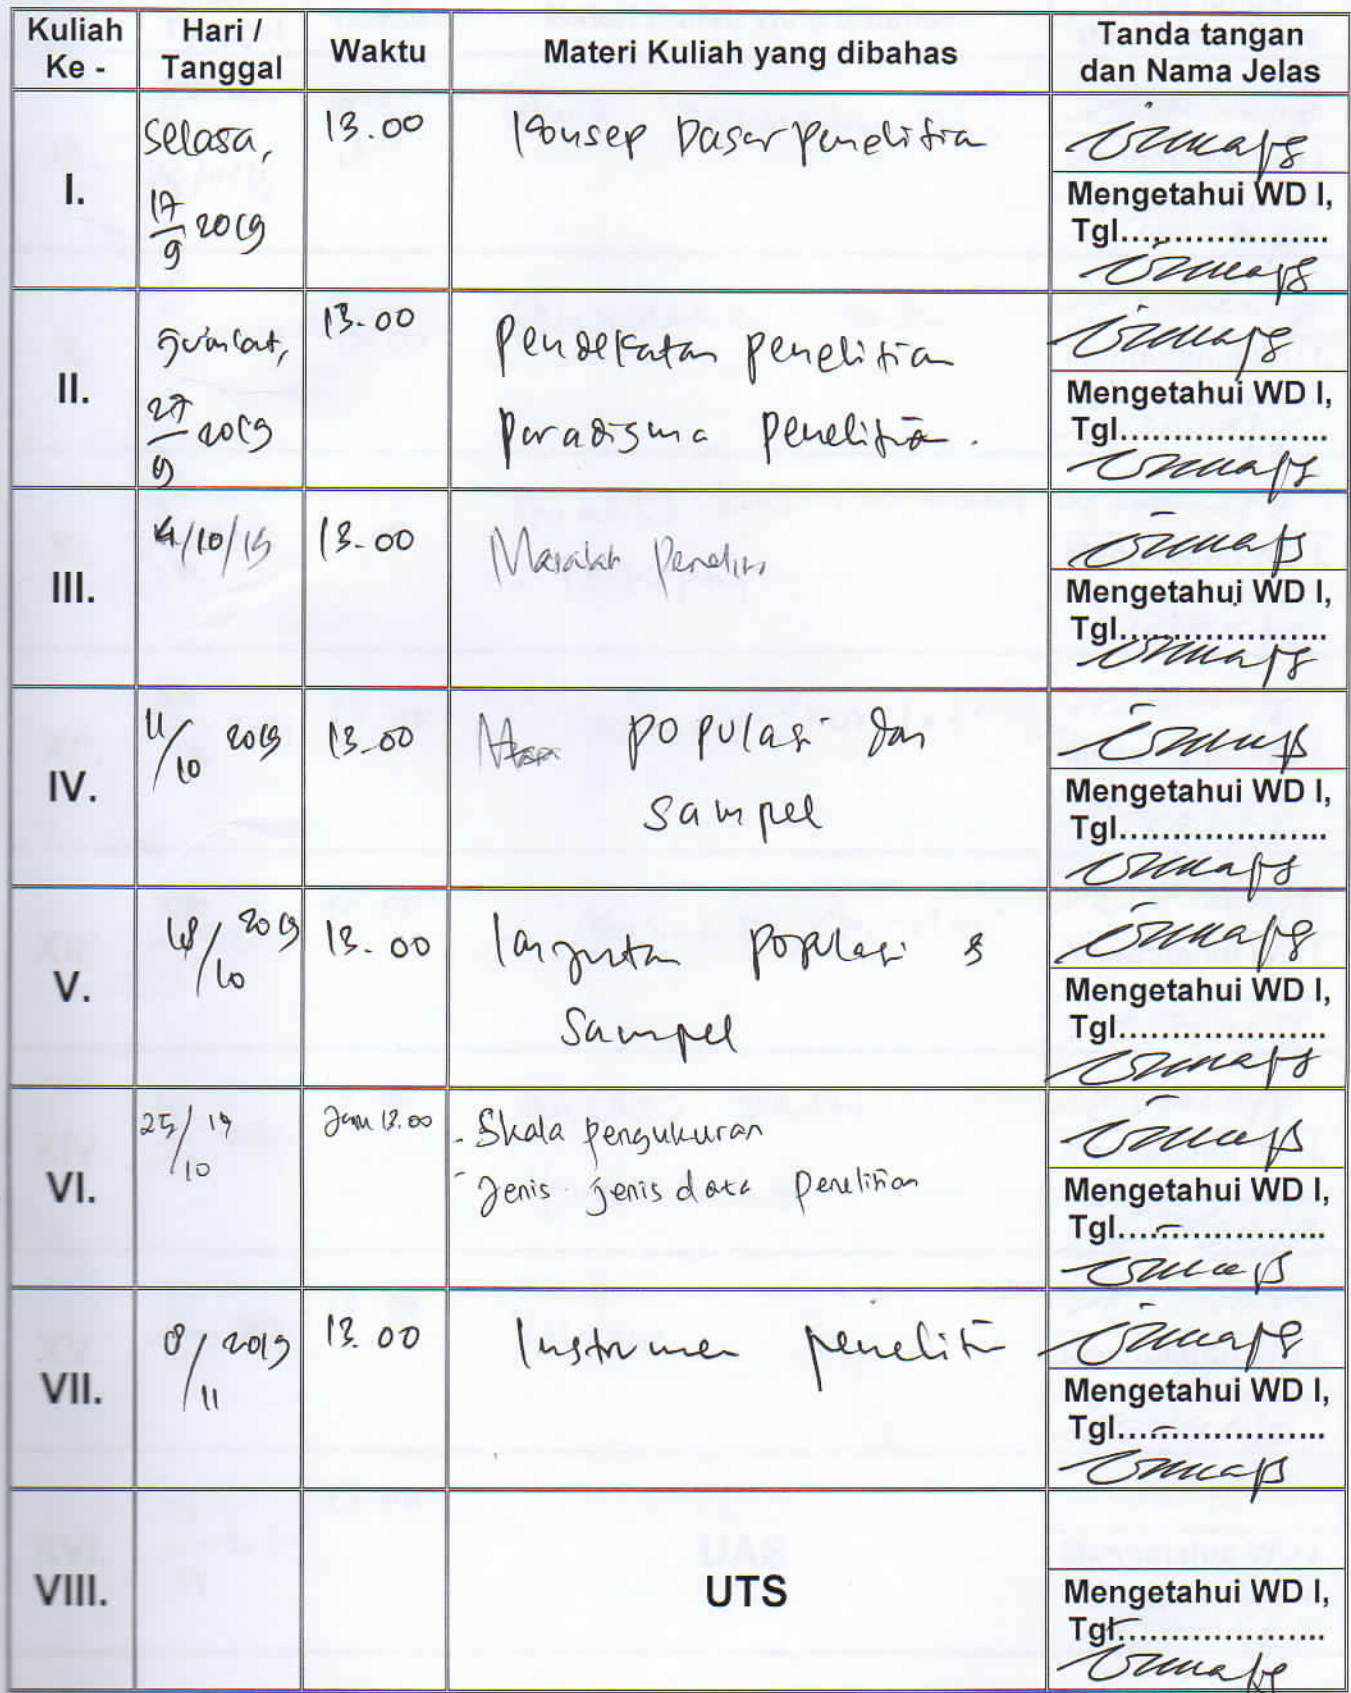 Kuliah Ke -
Hari / Tanggal
Waktu
Materi Kuliah yang dibahas
Tanda tangan dan Nama Jelas
I.
Selasa,
17/9 2019
13.00
Konsep Dasar Penelitia
Mengetahui WD I,
Tgl....................
II.
27/9 2019
13.00
Pendekatan penelitian
Paradigma penelitia.
Mengetahui WD I,
Tgl....................
III.
4/10/19
13.00
Masalah Peneliti
Mengetahui WD I,
Tgl....................
IV.
11/10 2019
13.00
populasi dan
sampel
Mengetahui WD I,
Tgl....................
V.
18/10 2019
13.00
lanjutan populasi &
Sampel
Mengetahui WD I,
Tgl....................
VI.
25/10 19
Jam 13.00
- Skala pengukuran
- Jenis-jenis data penelitian
Mengetahui WD I,
Tgl....................
VII.
8/11 2019
13.00
Instrumen peneliti
Mengetahui WD I,
Tgl....................
VIII.
UAS
UTS
Mengetahui WD I,
Tgl....................